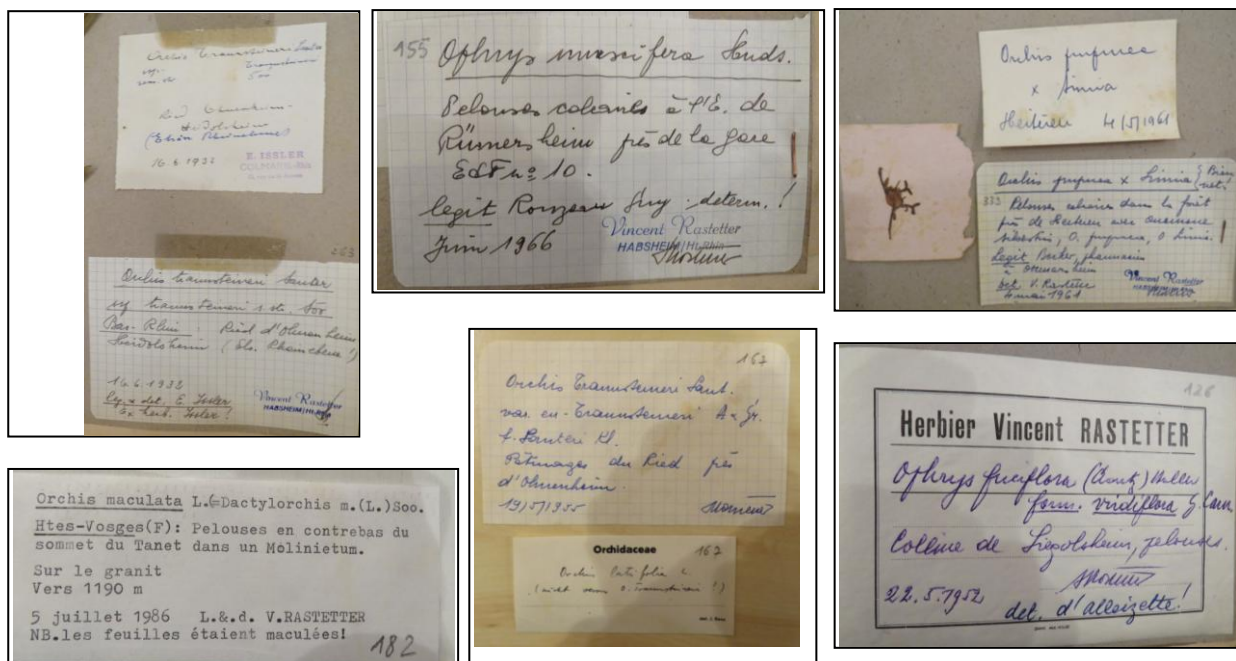 Orchis Traunsteineri
Ried Ohnenheim-
Heidolsheim
16.6.1932
E. ISSLER
COLMAR
263
Orchis traunsteineri Sauter
Bas-Rhin : Ried d'Ohnenheim
Heidolsheim
16.6.1932
det. E. Issler
Ex herb. Issler !
Vincent Rastetter
HABSHEIM/Ht.Rhin
155 Ophrys muscifera Huds.
Pelouses calcaires à l'E. de
Rümersheim près de la gare
EdF nº 10.
legit Rouzeau Guy : determ. !
Juin 1966
Vincent Rastetter
HABSHEIM/Ht.Rhin
Orchis purpurea
x Simia
Heiteren 4/5/1961
Orchis purpurea x Simia
333 Pelouses calcaires dans la forêt
près de avec anemone
silvestris, O. purpurea, O Simia.
Legit pharmacien
à Ottmarsheim
det V. Rastetter
mai 1961
Vincent Rastetter
HABSHEIM/Ht.Rhin
Orchis maculata L.(=Dactylorchis m.(L.)Soo.
Htes-Vosges(F): Pelouses en contrebas du
sommet du Tanet dans un Molinietum.
Sur le granit
Vers 1190 m
5 juillet 1986 L.&.d. V.RASTETTER
NB.les feuilles étaient maculées!
182
167
Orchis Traunsteineri Saut.
var. eu-Traunsteineri A. & Gr.
f. Sauteri Kl.
Pâturages du Ried près
d'Ohnenheim.
19/5/1955
Orchidaceae 167
Orchis latifolia L.
126
Herbier Vincent RASTETTER
Ophrys fuciflora (Crantz) Haller
form. virdiflora G. Cam.
Colline de Sigolsheim, pelouses.
22.5.1952
det. d'Alleizette!